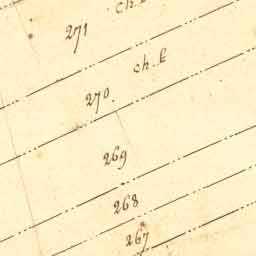 ch.
271
ch. l
270.
269
268
267